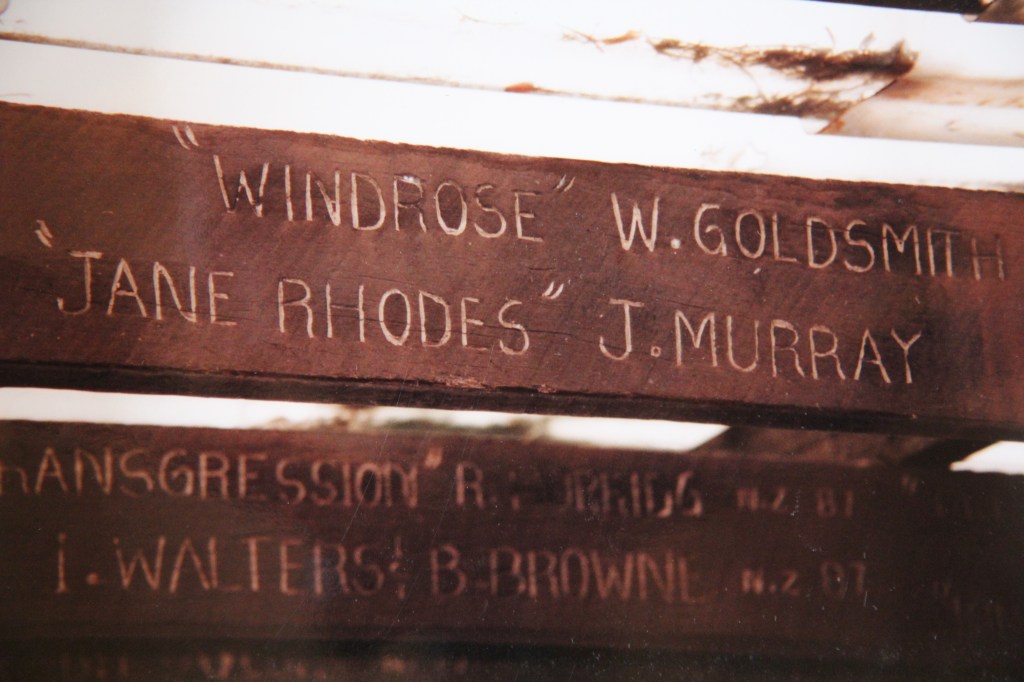 "WINDROSE" W. GOLDSMITH
"JANE RHODES" J. MURRAY
RANSGRESSION" R. N.Z 87
I. WALTERS & B. BROWNE N.Z 87